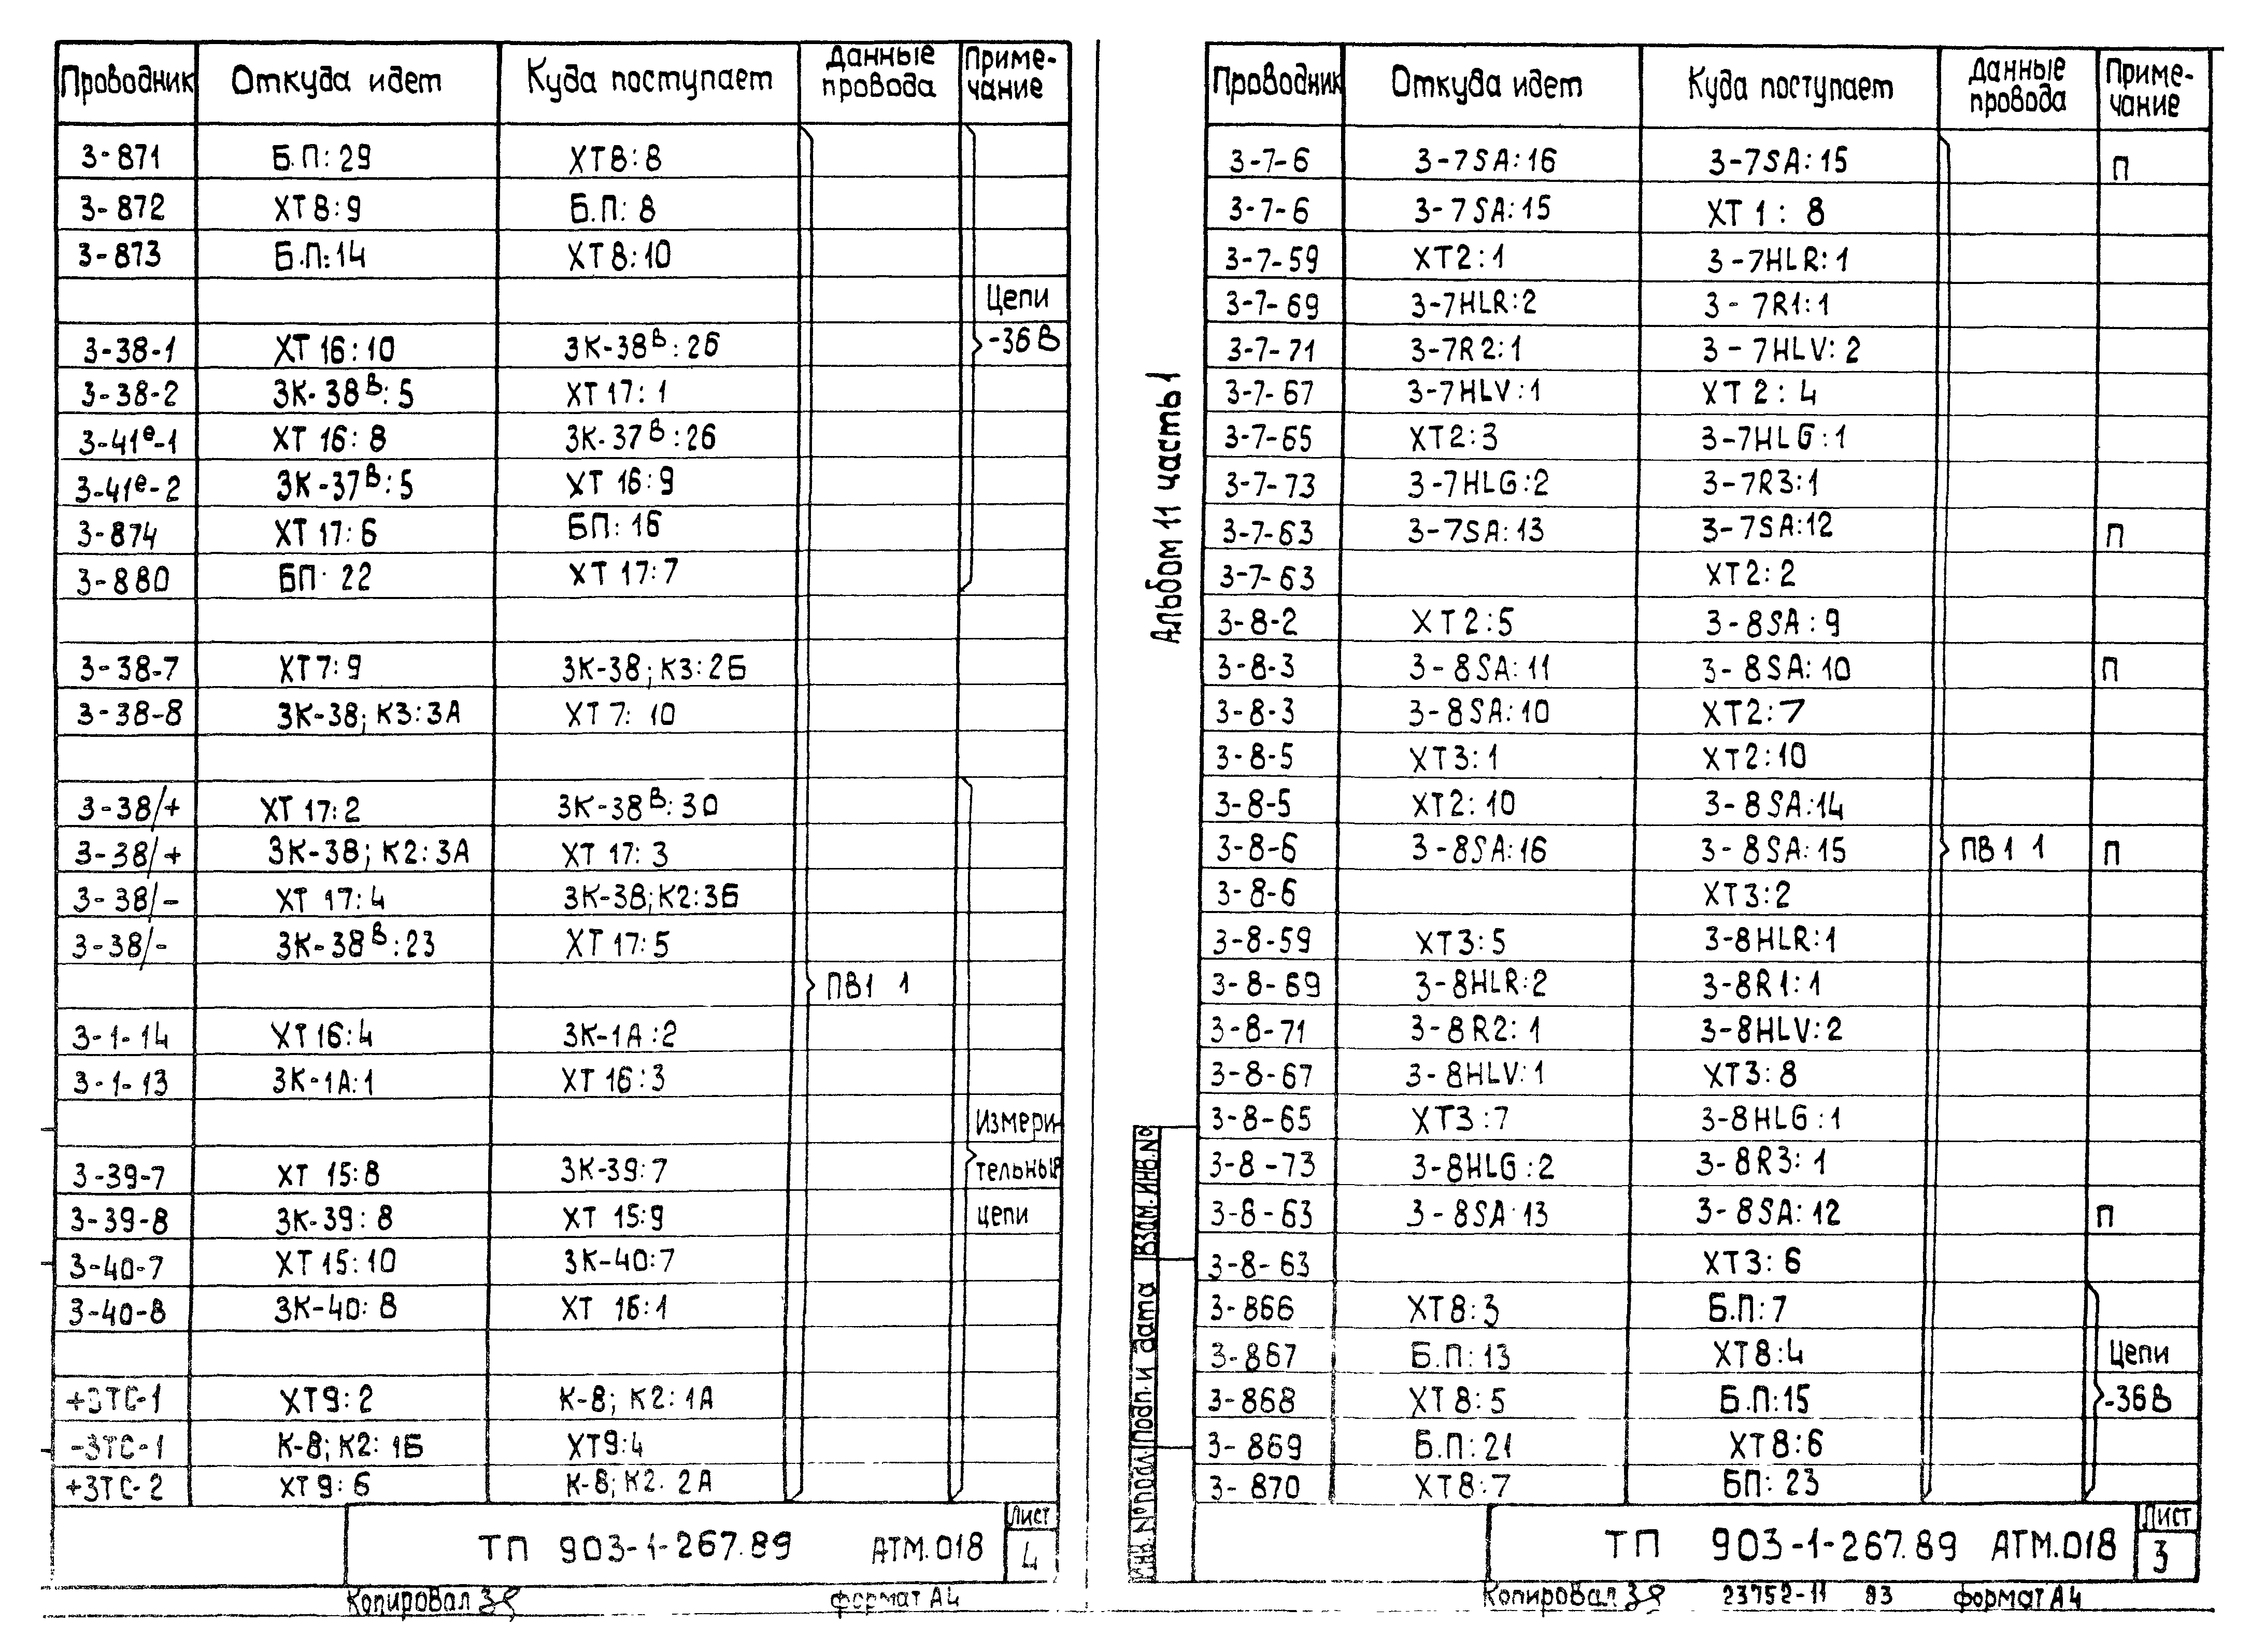 Проводник Откуда идет Куда поступает Данные провода Примечание
3-871 Б.П:29 ХТ8:8
3-872 ХТ8:9 Б.П:8
3-873 Б.П:14 ХТ8:10
Цепи
3-38-1 ХТ16:10 3К-38В:26 -36В
3-38-2 3К-38В:5 ХТ17:1
3-41е-1 ХТ16:8 3К-37В:26
3-41е-2 3К-37В:5 ХТ16:9
3-874 ХТ17:6 БП:16
3-880 БП:22 ХТ17:7
3-38-7 ХТ7:9 3К-38; К3:2Б
3-38-8 3К-38; К3:3А ХТ7:10
3-38/+ ХТ17:2 3К-38В:30
3-38/+ 3К-38; К2:3А ХТ17:3
3-38/- ХТ17:4 3К-38; К2:3Б
3-38/- 3К-38В:23 ХТ17:5
ПВ1 1
3-1-14 ХТ16:4 3К-1А:2
3-1-13 3К-1А:1 ХТ16:3
Измери-
3-39-7 ХТ15:8 3К-39:7 тельные
3-39-8 3К-39:8 ХТ15:9 цепи
3-40-7 ХТ15:10 3К-40:7
3-40-8 3К-40:8 ХТ16:1
+3ТС-1 ХТ9:2 К-8; К2:1А
-3ТС-1 К-8; К2:1Б ХТ9:4
+3ТС-2 ХТ9:6 К-8; К2.2А
ТП 903-1-267.89 АТМ.018 Лист 4
Копировал формат А4
Проводник Откуда идет Куда поступает Данные провода Примечание
3-7-6 3-7SA:16 3-7SA:15 П
3-7-6 3-7SA:15 ХТ1:8
3-7-59 ХТ2:1 3-7HLR:1
3-7-69 3-7HLR:2 3-7R1:1
3-7-71 3-7R2:1 3-7HLV:2
3-7-67 3-7HLV:1 ХТ2:4
3-7-65 ХТ2:3 3-7HLG:1
3-7-73 3-7HLG:2 3-7R3:1
3-7-63 3-7SA:13 3-7SA:12 П
3-7-63 ХТ2:2
3-8-2 ХТ2:5 3-8SA:9
3-8-3 3-8SA:11 3-8SA:10 П
3-8-3 3-8SA:10 ХТ2:7
3-8-5 ХТ3:1 ХТ2:10
3-8-5 ХТ2:10 3-8SA:14
3-8-6 3-8SA:16 3-8SA:15 ПВ1 1 П
3-8-6 ХТ3:2
3-8-59 ХТ3:5 3-8HLR:1
3-8-69 3-8HLR:2 3-8R1:1
3-8-71 3-8R2:1 3-8HLV:2
3-8-67 3-8HLV:1 ХТ3:8
3-8-65 ХТ3:7 3-8HLG:1
3-8-73 3-8HLG:2 3-8R3:1
3-8-63 3-8SA·13 3-8SA:12 П
3-8-63 ХТ3:6
3-866 ХТ8:3 Б.П:7
3-867 Б.П:13 ХТ8:4 Цепи
3-868 ХТ8:5 Б.П:15 -36В
3-869 Б.П:21 ХТ8:6
3-870 ХТ8:7 БП:23
Альбом 11 часть 1
Инв.№ подл. Подп. и дата Взам.инв.№
ТП 903-1-267.89 АТМ.018 Лист 3
Копировал 23752-11 93 формат А4